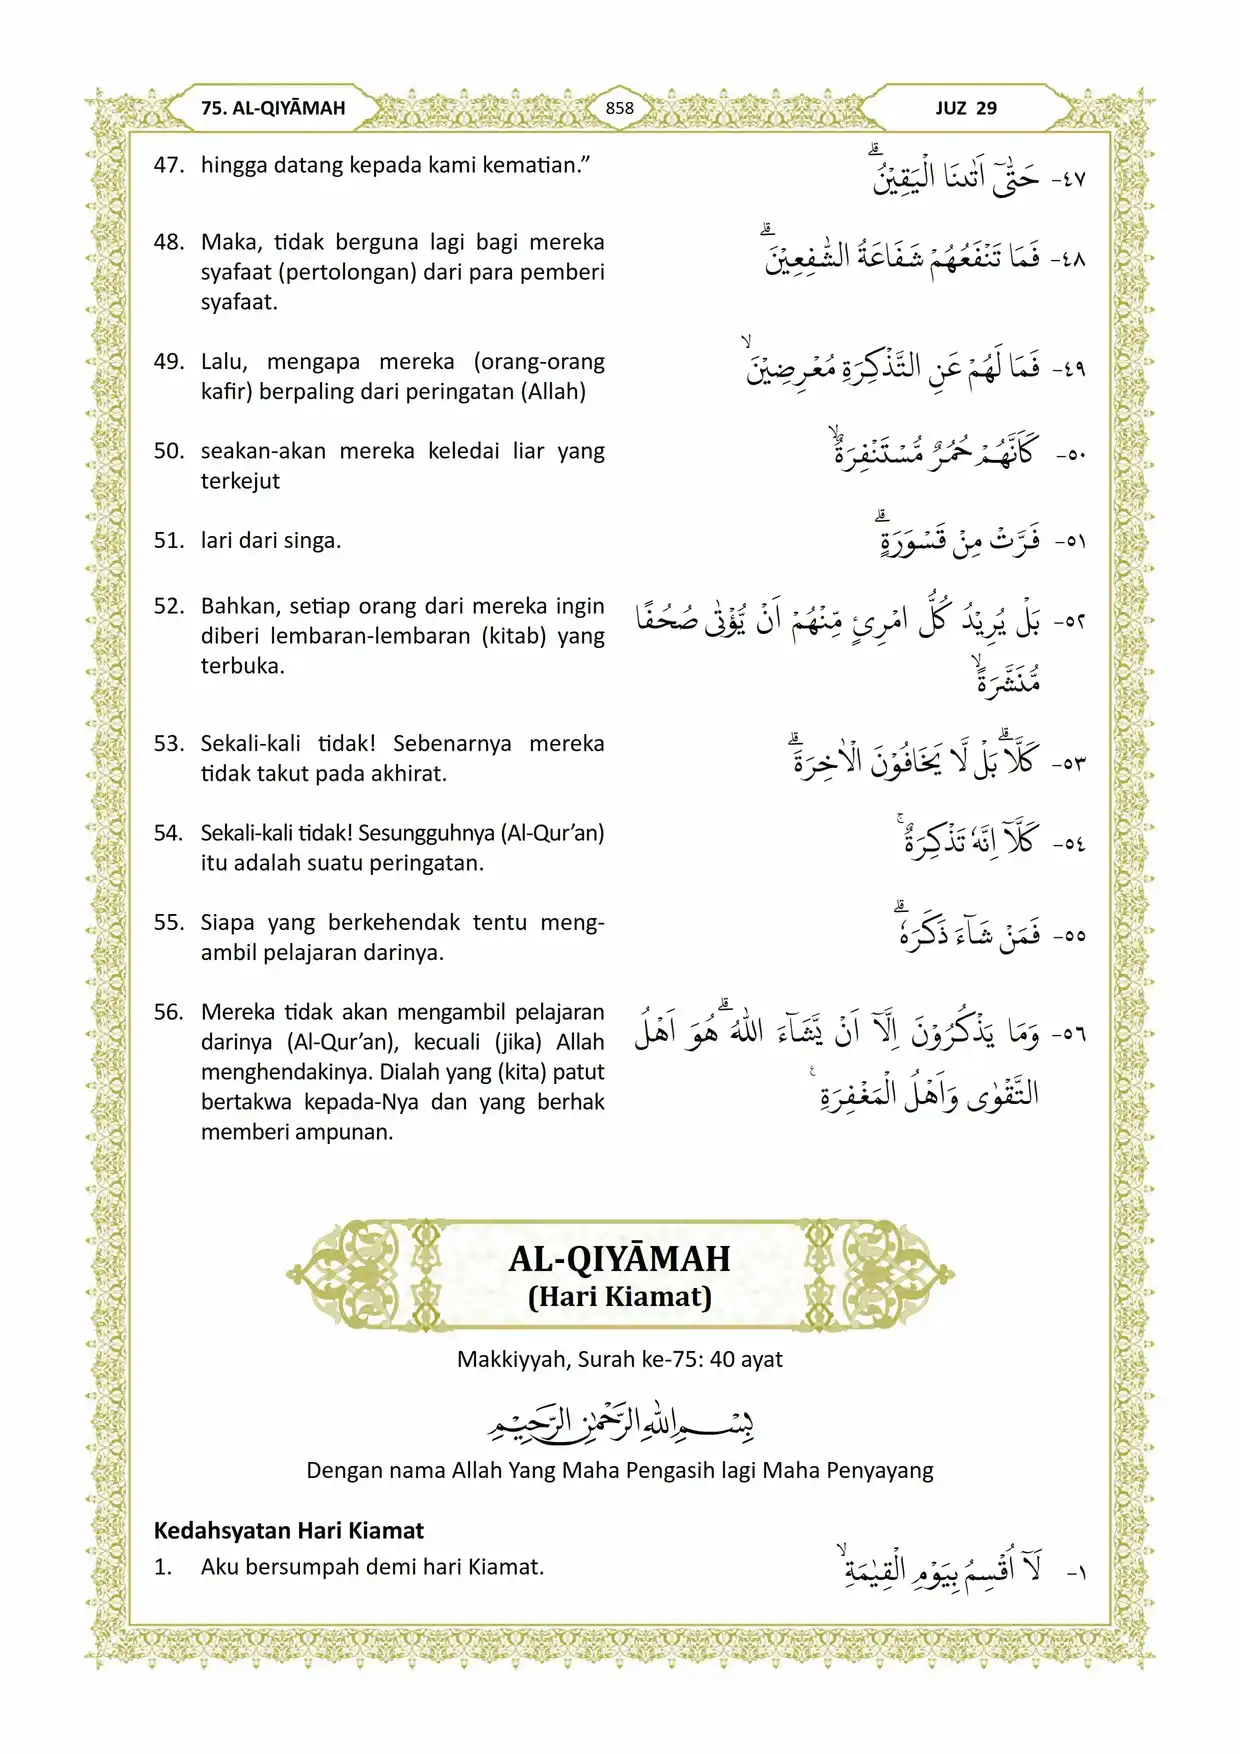 75. AL-QIYĀMAH
858
JUZ 29
47. hingga datang kepada kami kematian.”
٤٧- حَتّٰىٓ اَتٰىنَا الْيَقِيْنُۗ
48. Maka, tidak berguna lagi bagi mereka
syafaat (pertolongan) dari para pemberi
syafaat.
٤٨- فَمَا تَنْفَعُهُمْ شَفَاعَةُ الشّٰفِعِيْنَۗ
49. Lalu, mengapa mereka (orang-orang
kafir) berpaling dari peringatan (Allah)
٤٩- فَمَا لَهُمْ عَنِ التَّذْكِرَةِ مُعْرِضِيْنَۙ
50. seakan-akan mereka keledai liar yang
terkejut
٥٠- كَاَنَّهُمْ حُمُرٌ مُّسْتَنْفِرَةٌۙ
51. lari dari singa.
٥١- فَرَّتْ مِنْ قَسْوَرَةٍۗ
52. Bahkan, setiap orang dari mereka ingin
diberi lembaran-lembaran (kitab) yang
terbuka.
٥٢- بَلْ يُرِيْدُ كُلُّ امْرِئٍ مِّنْهُمْ اَنْ يُّؤْتٰى صُحُفًا
مُّنَشَّرَةًۙ
53. Sekali-kali tidak! Sebenarnya mereka
tidak takut pada akhirat.
٥٣- كَلَّاۗ بَلْ لَّا يَخَافُوْنَ الْاٰخِرَةَۗ
54. Sekali-kali tidak! Sesungguhnya (Al-Qur’an)
itu adalah suatu peringatan.
٥٤- كَلَّآ اِنَّهٗ تَذْكِرَةٌ ۚ
55. Siapa yang berkehendak tentu meng-
ambil pelajaran darinya.
٥٥- فَمَنْ شَاۤءَ ذَكَرَهٗۗ
56. Mereka tidak akan mengambil pelajaran
darinya (Al-Qur’an), kecuali (jika) Allah
menghendakinya. Dialah yang (kita) patut
bertakwa kepada-Nya dan yang berhak
memberi ampunan.
٥٦- وَمَا يَذْكُرُوْنَ اِلَّآ اَنْ يَّشَاۤءَ اللّٰهُ ۗهُوَ اَهْلُ
التَّقْوٰى وَاَهْلُ الْمَغْفِرَةِ ࣖ
AL-QIYĀMAH
(Hari Kiamat)
Makkiyyah, Surah ke-75: 40 ayat
بِسْمِ اللّٰهِ الرَّحْمٰنِ الرَّحِيْمِ
Dengan nama Allah Yang Maha Pengasih lagi Maha Penyayang
Kedahsyatan Hari Kiamat
1. Aku bersumpah demi hari Kiamat.
١- لَآ اُقْسِمُ بِيَوْمِ الْقِيٰمَةِۙ